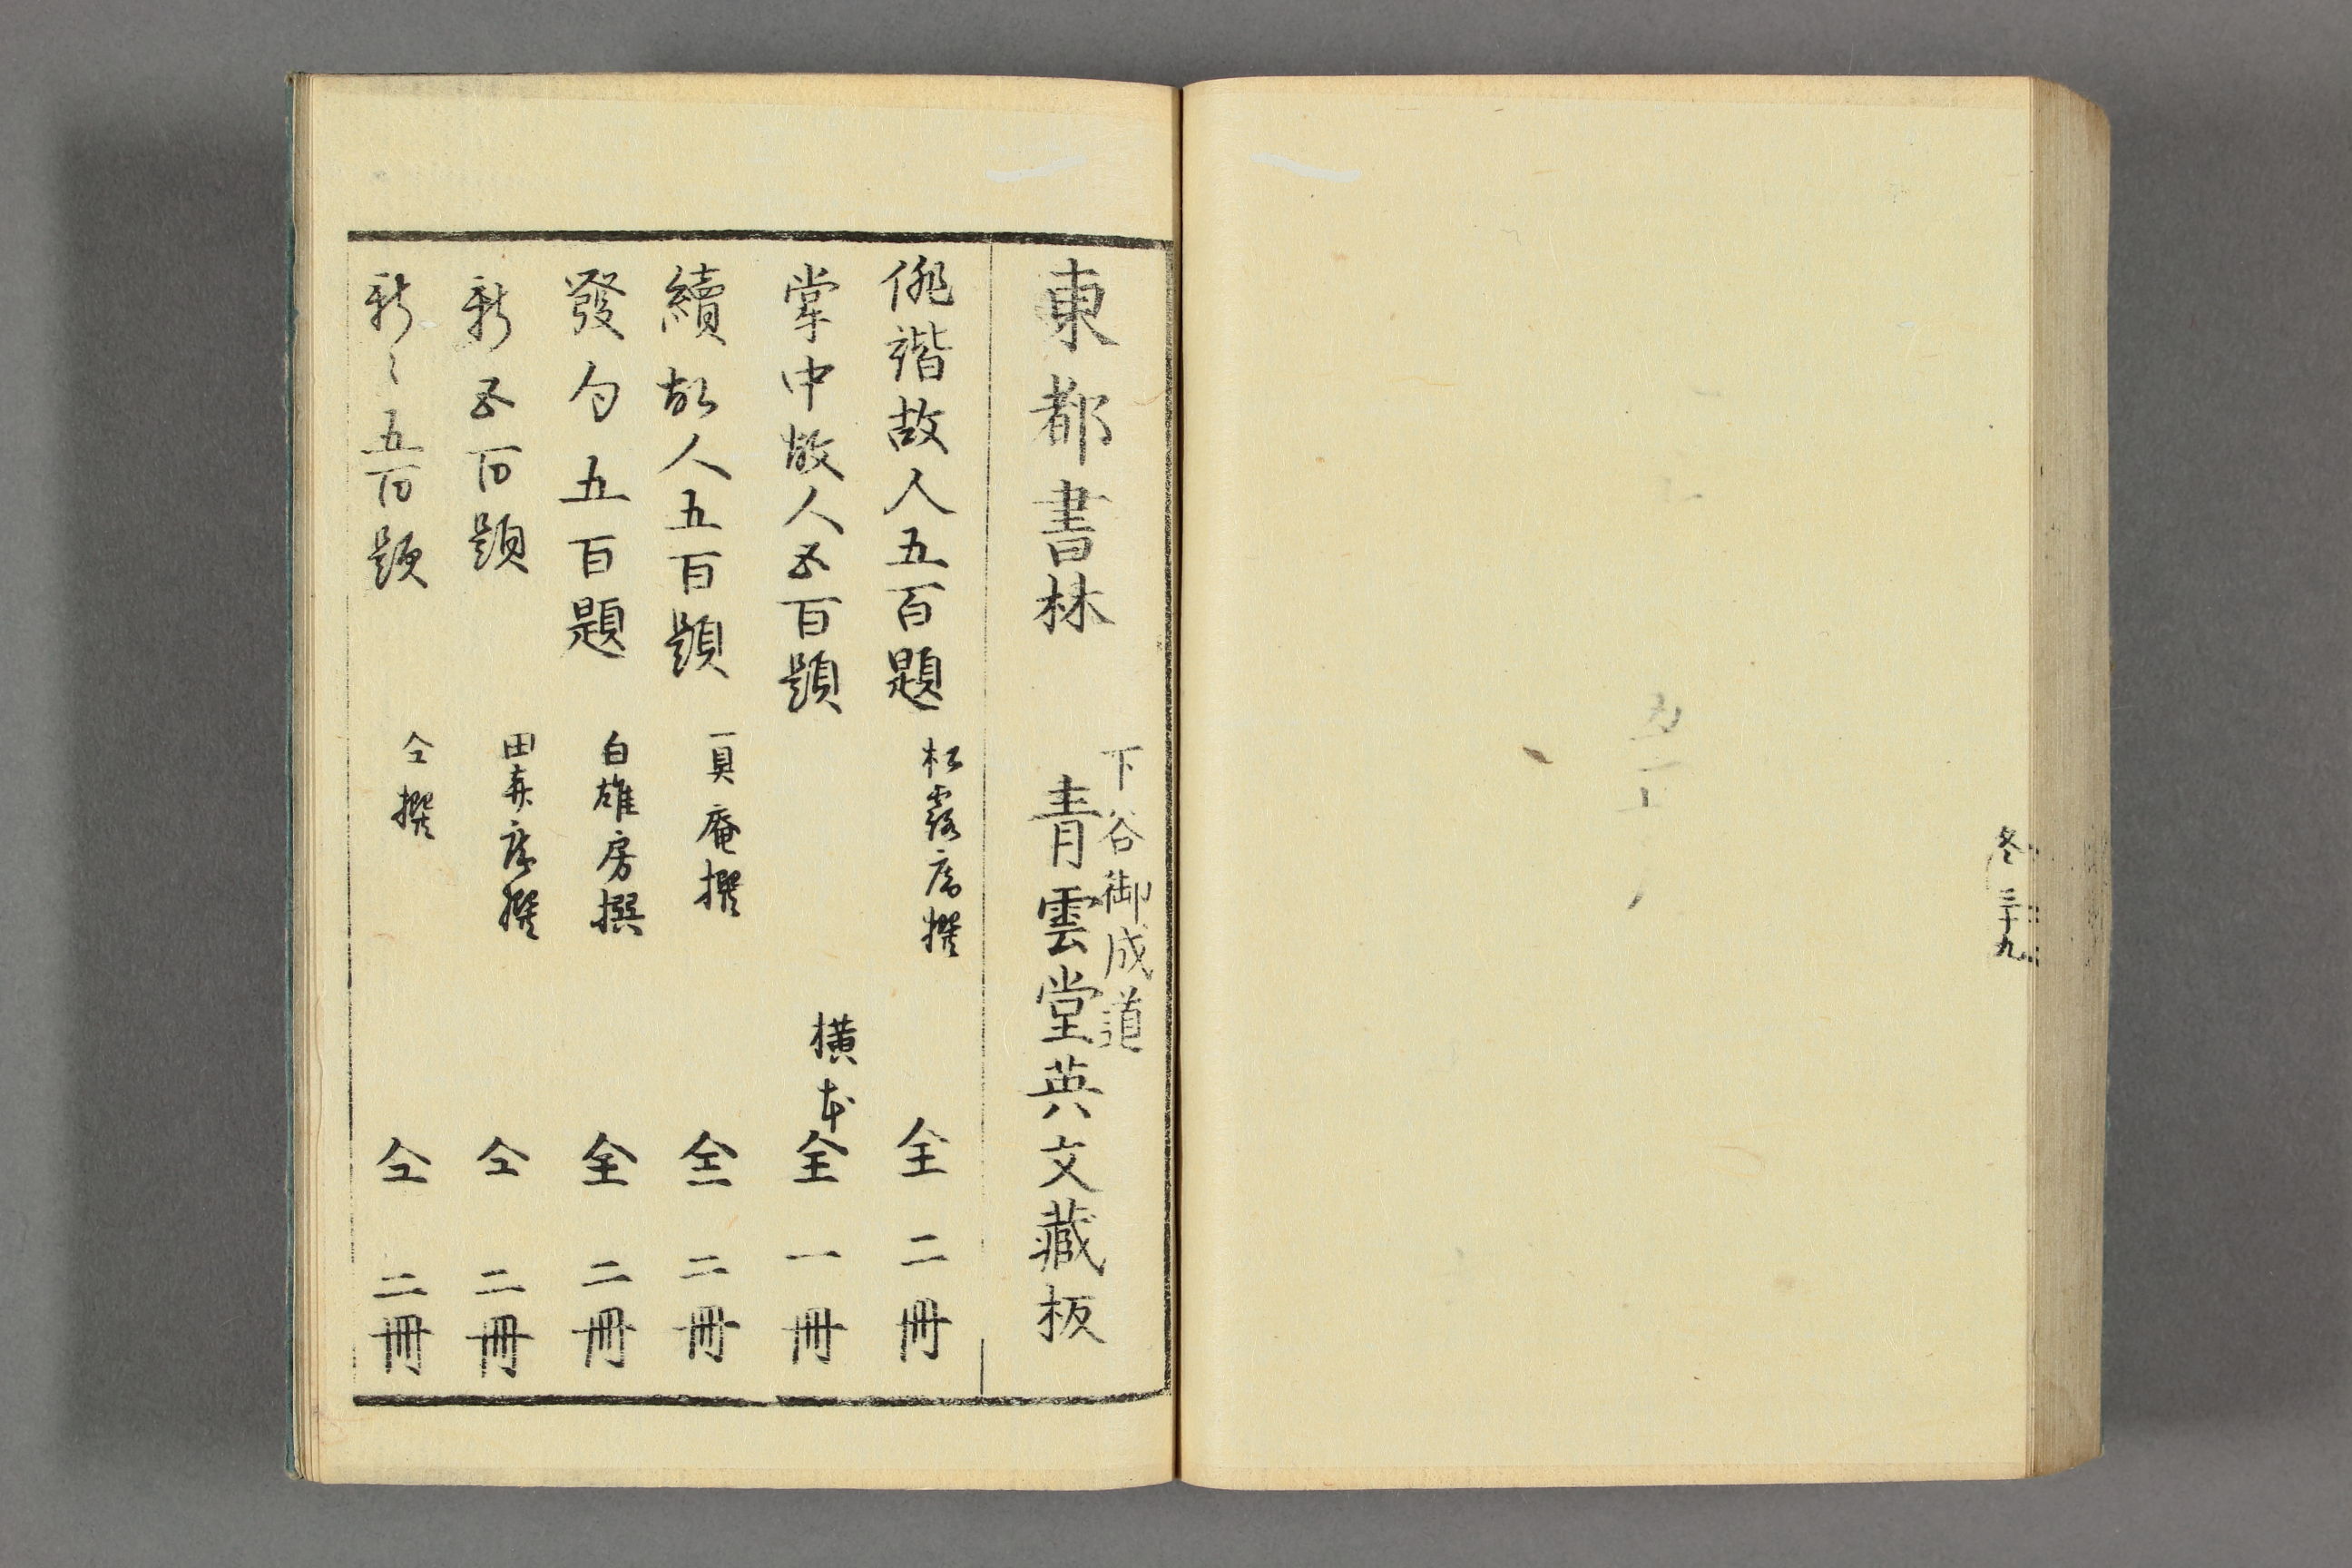 冬 三十九
東都書林
下谷御成道
青雲堂英文藏板
俳諧故人五百題 松露庵撰 全二冊
掌中故人五百題 横本 全一冊
續故人五百題 一具庵撰 全二冊
發句五百題 白雄房撰 全二冊
新五百題 田喜庵撰 仝二冊
新〻五百題 仝撰 仝二冊